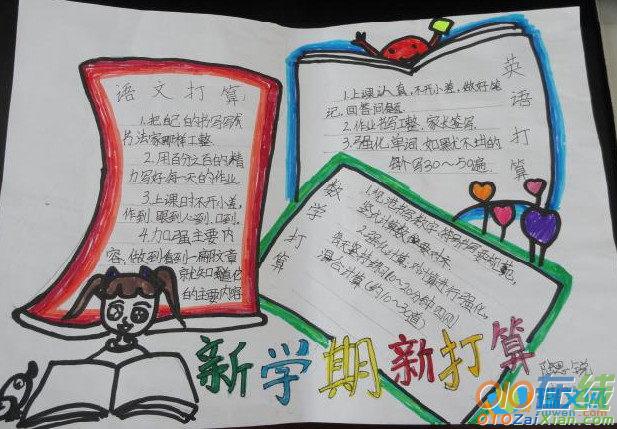 语文打算
1.把自己的书写写有
书法家那样工整。
2.用百分之百的精
力写好每一天的作业。
3.上课时不开小差,
作到眼到心到、口到。
4.加强主要内
容,做到看到一篇文章
就知道
的主要内容
英语打算
1.上课认真,不开小差,做好笔
记,回答问题
2.作业书写工整,家长签写
3.强化单词,如果尤不对的
每个写30~50遍.
数学打算
2.强化计算,对计算进行强化,
每天坚持练10~20分钟四则
混合计算(约10~30道)
新学期新打算
在线
010ZaiXian.com